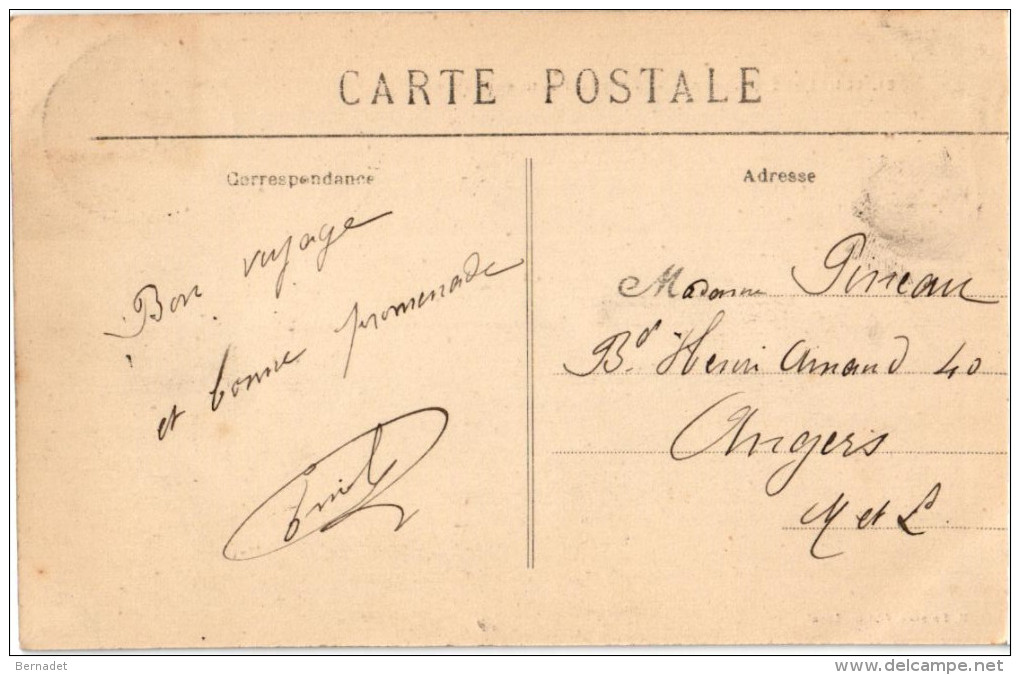 CARTE POSTALE
Correspondance
Bon voyage
et bonne promenade
Emile
Adresse
Madame Pineau
Bd. Henri Arnaud 40
Angers
M et L.
Bernadet
www.delcampe.net